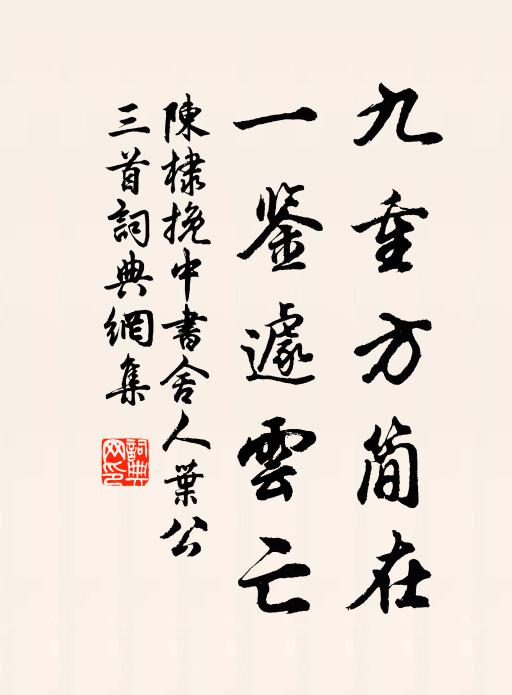 九重方简在
一鉴遽雲亡
陳棣挽中書舍人葉公
三首詞典網集
詞典网印